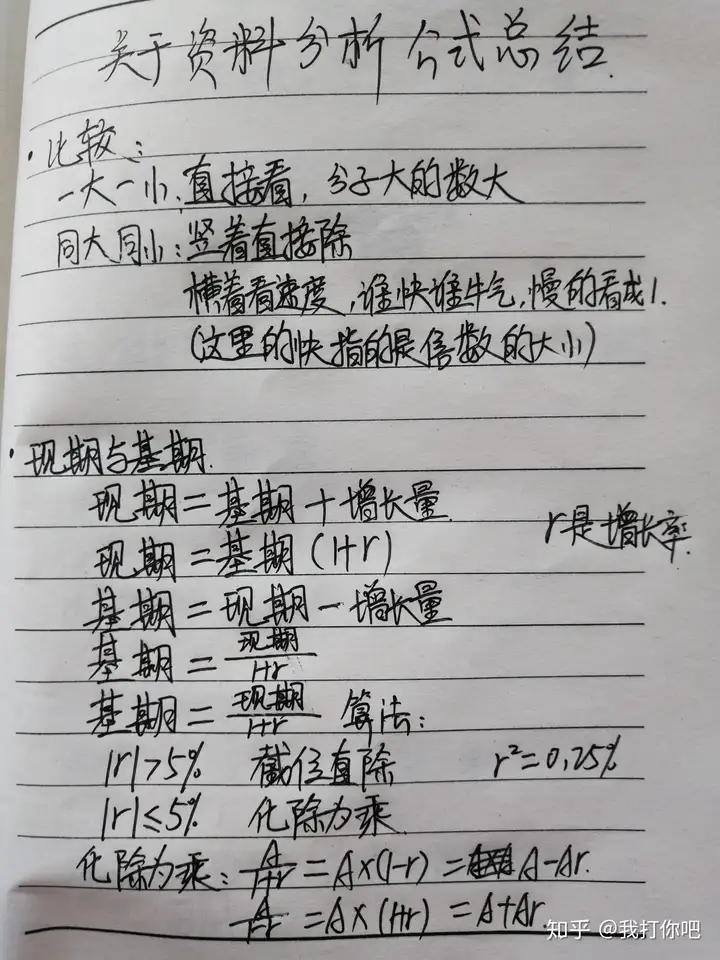 关于资料分析公式总结.
·比较：
一大一小：直接看，分子大的数大
同大同小：竖着直接除
横着看速度，谁快谁牛气，慢的看成1.
(这里的快指的是倍数的大小)
·现期与基期.
现期=基期+增长量.
r是增长率.
现期=基期(1+r)
基期=现期-增长量
基期=现期/1+r
基期=现期/1+r 算法：
|r|>5% 截位直除 r²=0.25%
|r|≤5% 化除为乘.
化除为乘：A/1+r=A×(1-r)=A-Ar.
A/1-r=A×(1+r)=A+Ar.
知乎 @我打你吧